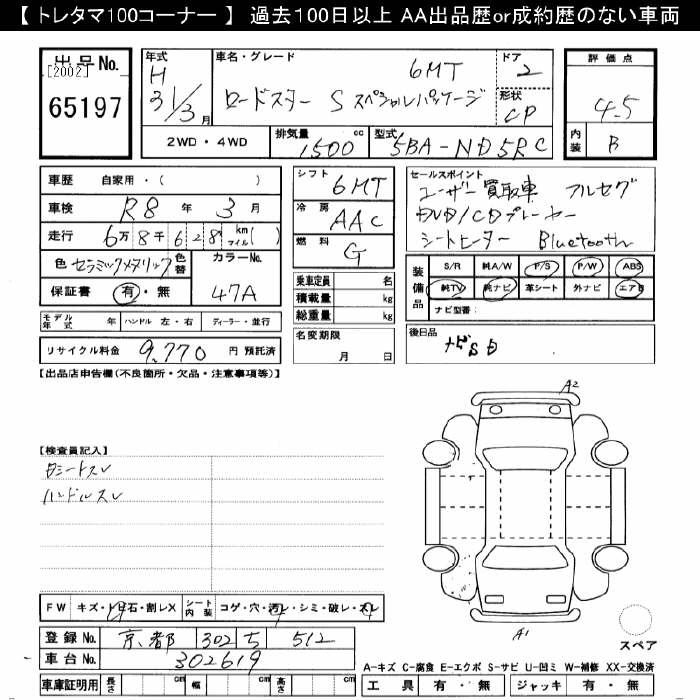 【 トレタマ100コーナー 】 過去100日以上 AA出品歴or成約歴のない車両
出品No.
[2002]
65197
年式 H 31/3 月
車名・グレード 6MT
ロードスター S スペシャルパッケージ
ドア 2
形状 CP
評価点 4.5
内装 B
2WD・4WD
排気量 1500 cc
型式 5BA-ND5RC
車歴 自家用・( )
車検 R8 年 3 月
走行 6万8千628 km マイル( )
色 セラミックメタリック 色替
カラーNo. 47A
保証書 有・無
モデル年式 年 ハンドル 左・右 ディーラー・並行
リサイクル料金 9,770 円 預託済
シフト 6MT
冷房 AAC
燃料 G
乗車定員 名
積載量 kg
総重量 kg
名変期限
月 日
セールスポイント
ユーザー買取車 フルセグ
DVD/CDプレーヤー
シートヒーター Bluetooth
装備品 S/R 純A/W P/S P/W ABS
純TV 純ナビ 革シート 外ナビ エアB
ナビ型番:
後日品
ナビSD
【出品店申告欄(不良箇所・欠品・注意事項等)】
【検査員記入】
ハンドルスレ
A2
A1
スペア
FW キズ・石・割レX シート内装 コゲ・穴・汚レ・シミ・破レ・スレ
登録No. 京都 302 ち 512
車台No. 302619
車庫証明用 長さ cm 幅 cm 高さ cm
A-キズ C-腐食 E-エクボ S-サビ U-凹ミ W-補修 XX-交換済
工具 有・無 ジャッキ 有・無